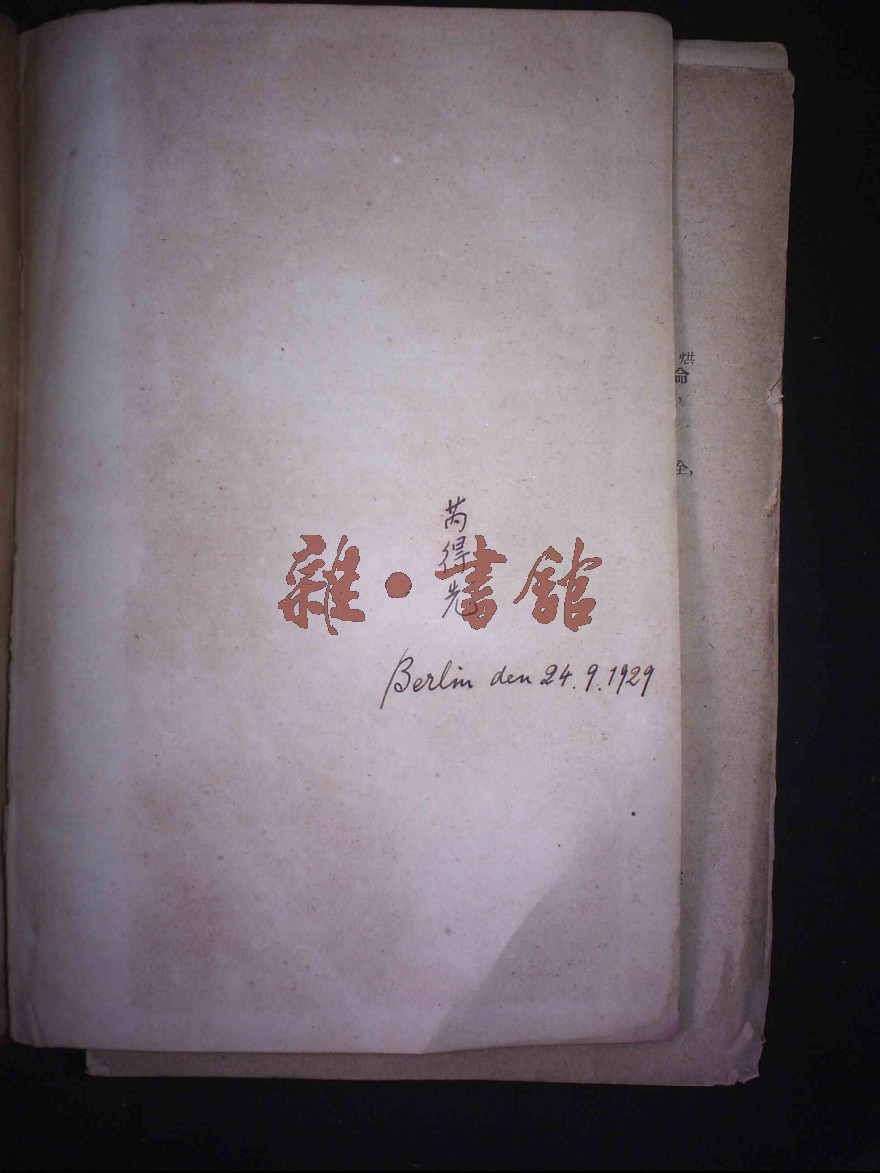 芮得先
雜·書館
Berlin den 24.9.1929
烘
命
，
全，